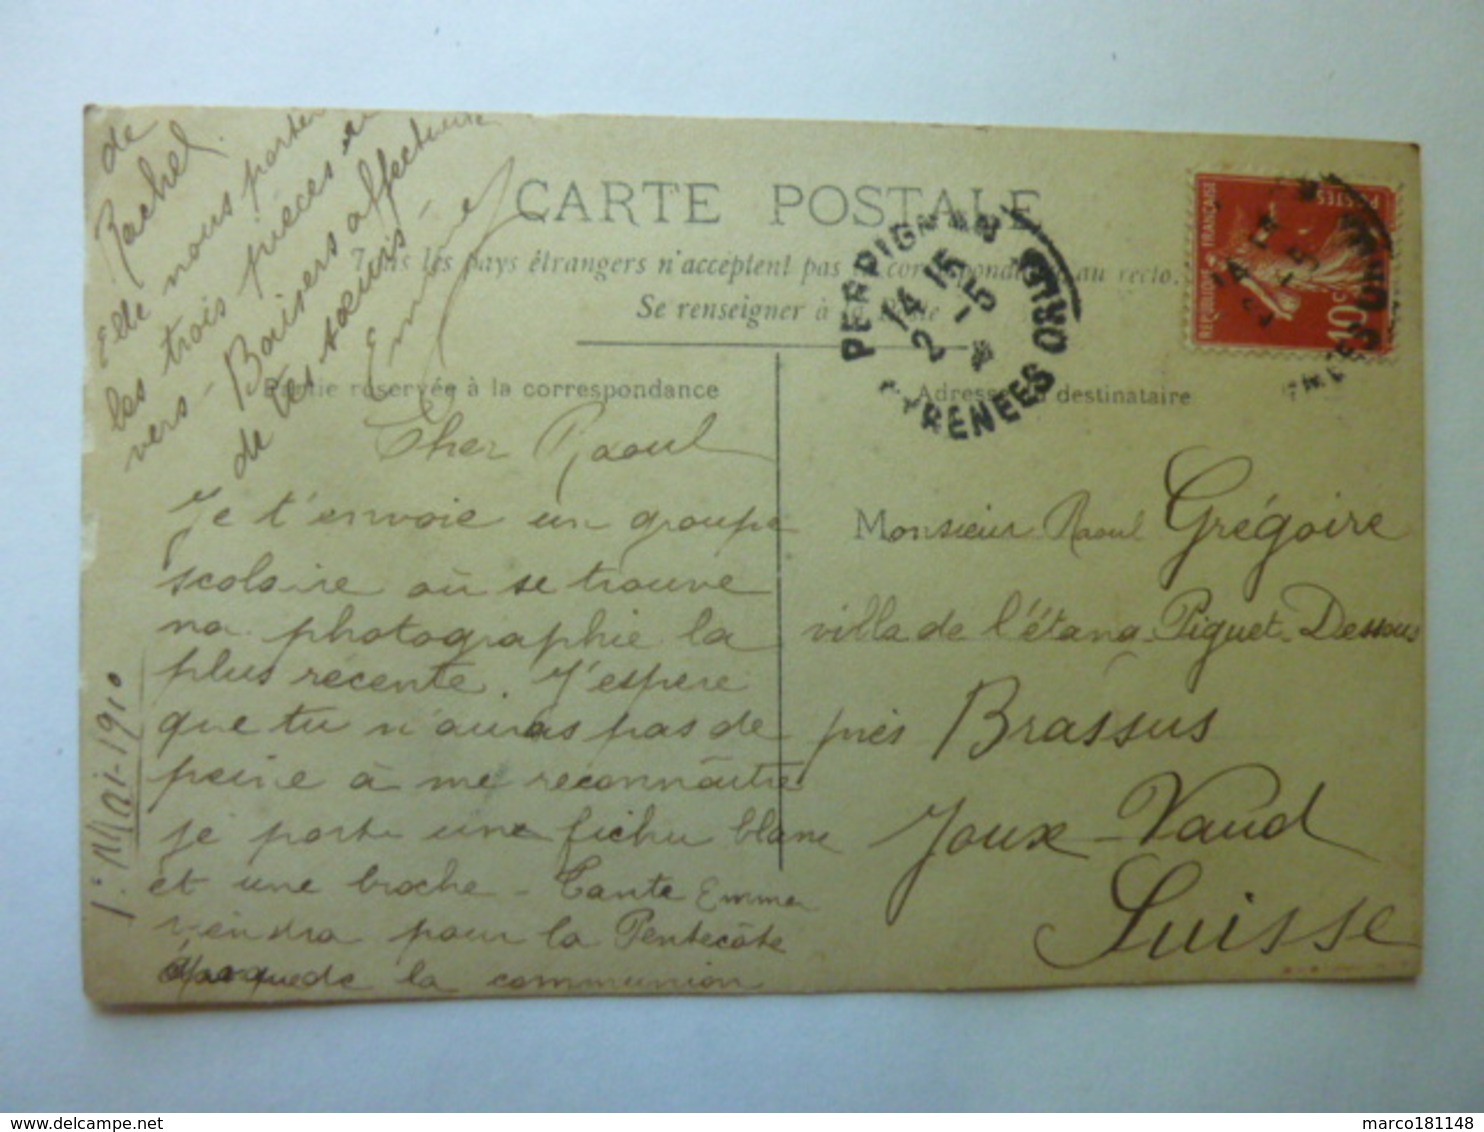 CARTE POSTALE
Tous les pays étrangers n'acceptent pas la correspondance au recto.
Se renseigner à la Poste
Partie réservée à la correspondance
Cher Raoul
Je t'envoie un groupe
scolaire où se trouve
ma photographie la
plus récente. J'espère
que tu n'auras pas de
peine à me reconnaître
je porte une fichu blanc
et une broche - Tante Emma
viendra pour la Pentecôte
la communion
de
Rachel.
Elle nous porter
les trois pièces en
vers - Baisers affectueux
de tes sœurs -
1° Mai-1910
Adresse du destinataire
Monsieur Raoul Grégoire
villa de l'étang Piguet-Dessous
près Brassus
Joux-Vaud
Suisse
PERPIGNAN
14 15
2 -5
PYRENEES ORIES
REPUBLIQUE FRANÇAISE
POSTES
10c
marco181148